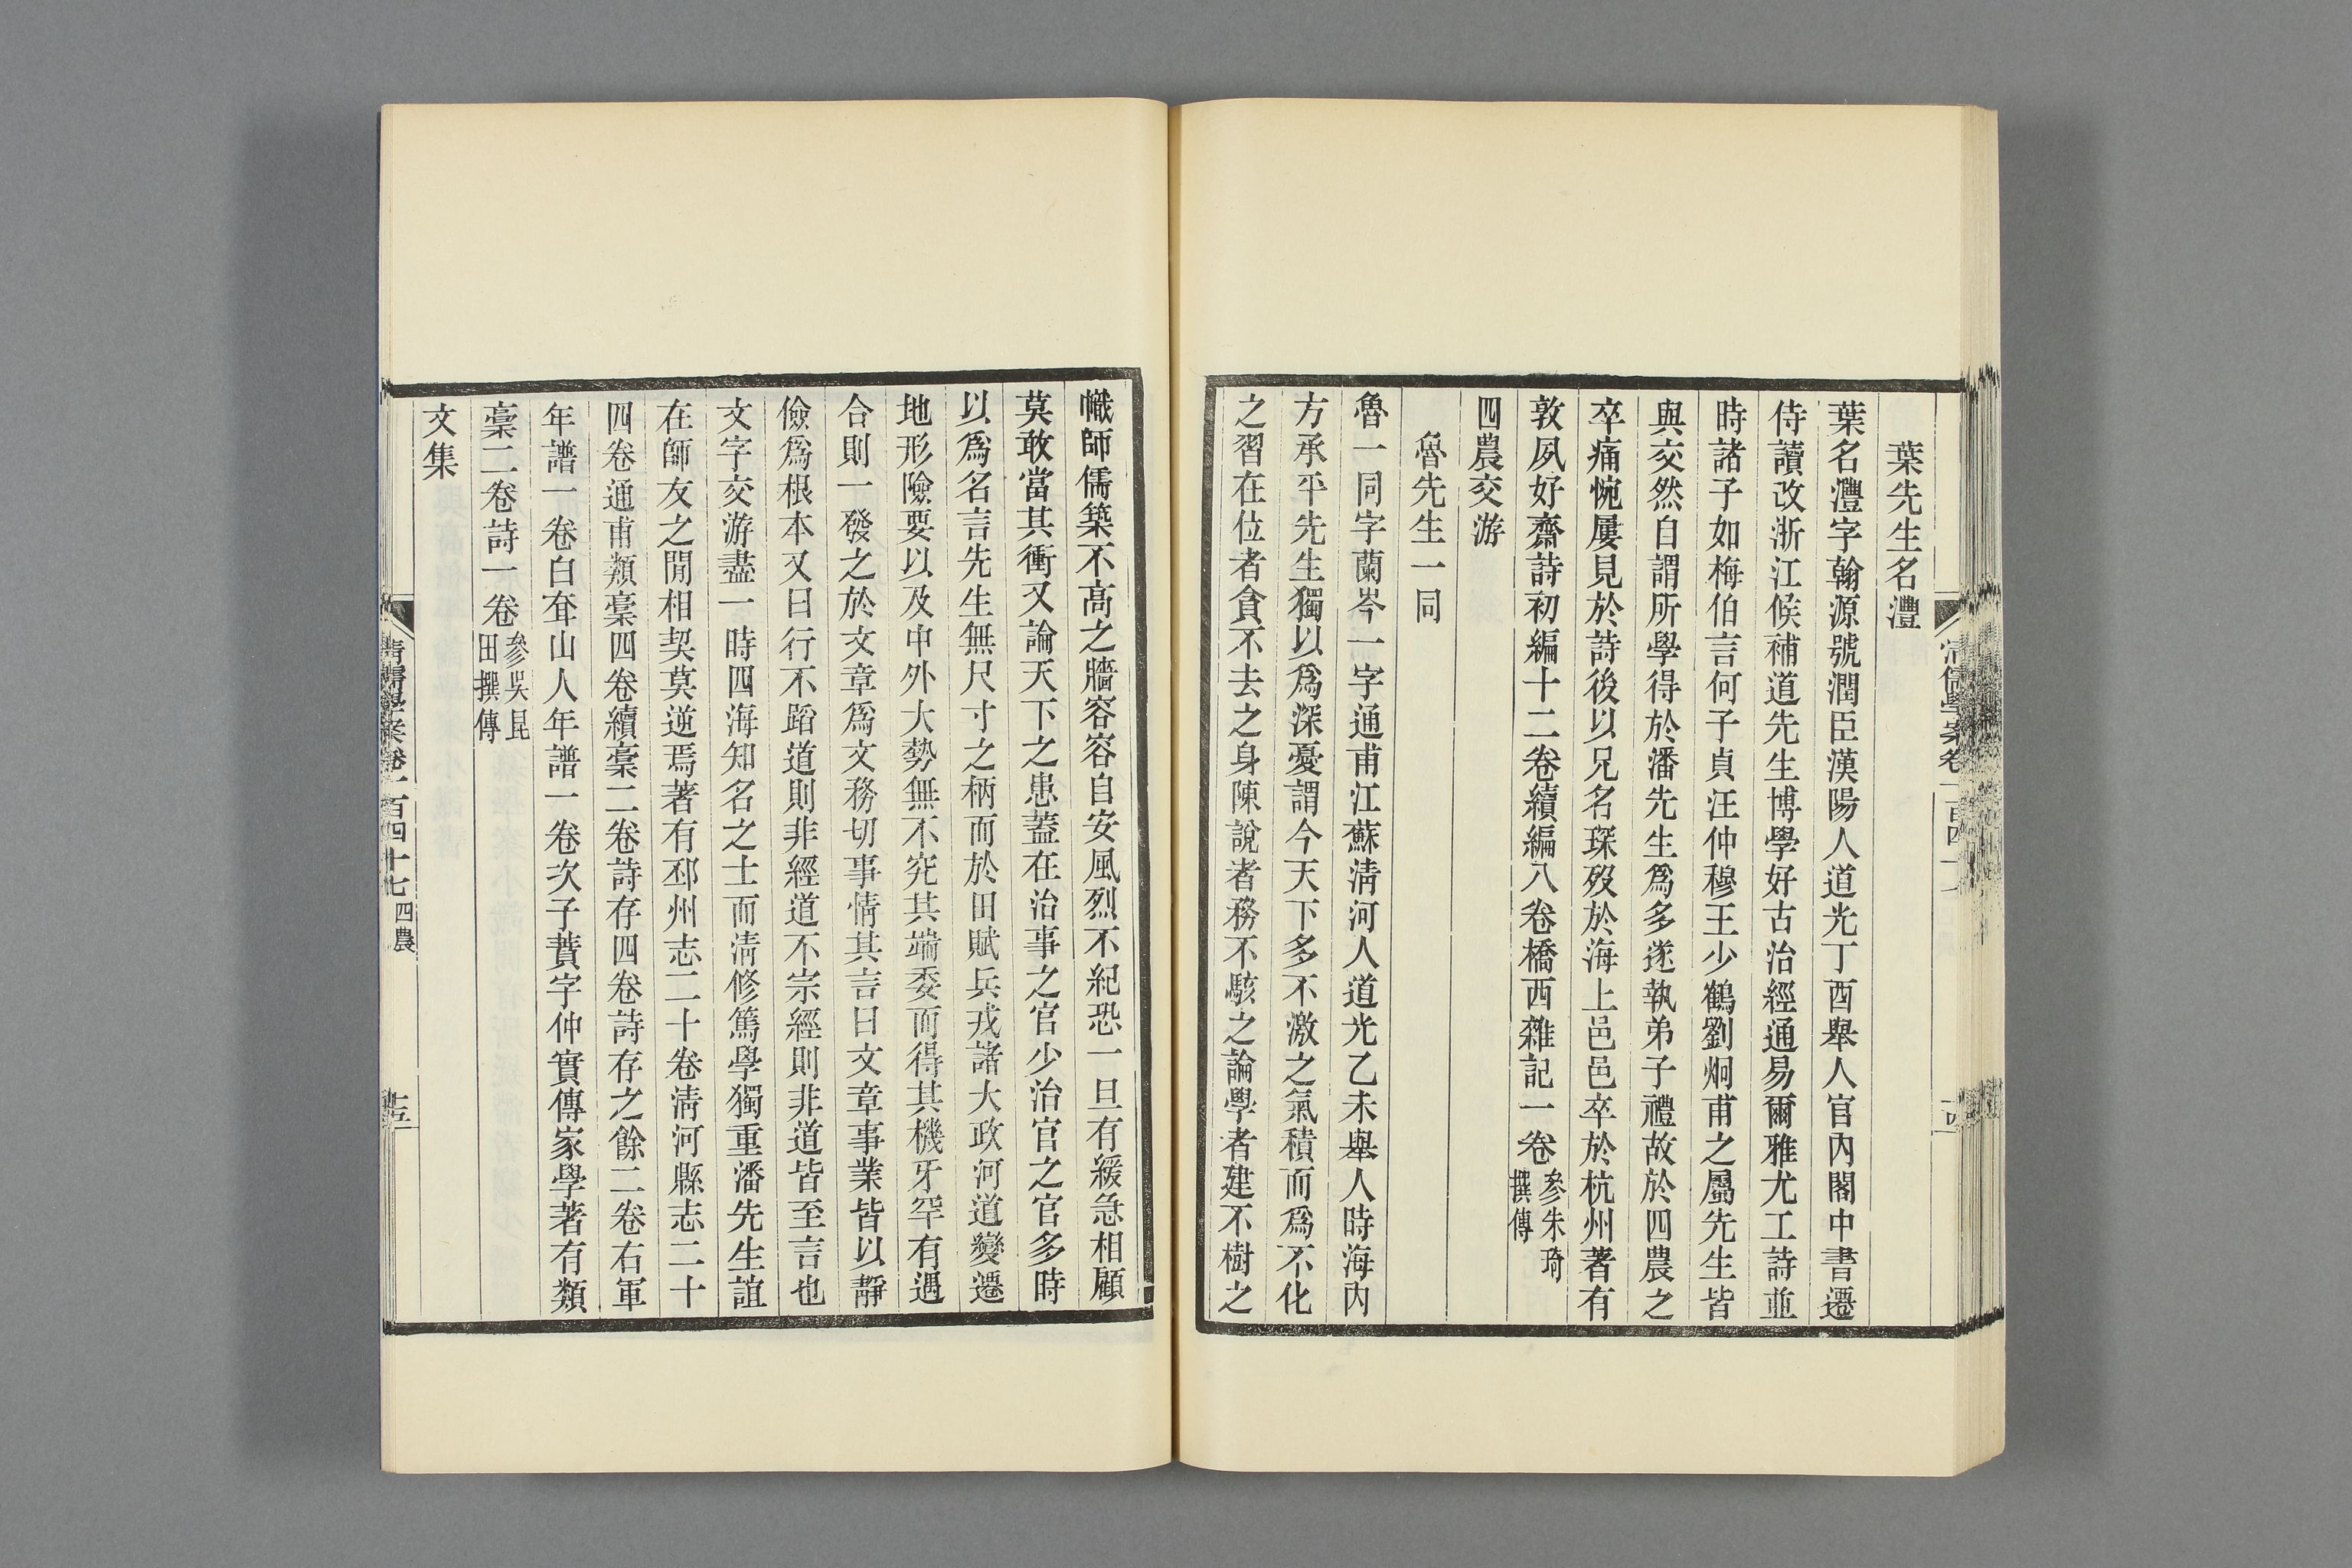 葉先生名灃
葉名灃字翰源號潤臣漢陽人道光丁酉舉人官內閣中書遷
侍讀改浙江候補道先生博學好古治經通易爾雅尤工詩並
時諸子如梅伯言何子貞汪仲穆王少鶴劉炯甫之屬先生皆
與交然自謂所學得於潘先生爲多遂執弟子禮故於四農之
卒痛惋屢見於詩後以兄名琛歿於海上邑邑卒於杭州著有
敦夙好齋詩初編十二卷續編八卷橋西雜記一卷參朱琦撰傳
四農交游
魯先生一同
魯一同字蘭岑一字通甫江蘇淸河人道光乙未舉人時海內
方承平先生獨以爲深憂謂今天下多不激之氣積而爲不化
之習在位者貪不去之身陳說者務不駭之論學者建不樹之
幟師儒築不高之牆容容自安風烈不紀恐一旦有緩急相顧
莫敢當其衝又論天下之患蓋在治事之官少治官之官多時
以爲名言先生無尺寸之柄而於田賦兵戎諸大政河道變遷
地形險要以及中外大勢無不究其端委而得其機牙罕有遇
合則一發之於文章爲文務切事情其言曰文章事業皆以靜
儉爲根本又曰行不蹈道則非經道不宗經則非道皆至言也
文字交游盡一時四海知名之士而淸修篤學獨重潘先生誼
在師友之閒相契莫逆焉著有邳州志二十卷淸河縣志二十
四卷通甫類稾四卷續稾二卷詩存四卷詩存之餘二卷右軍
年譜一卷白耷山人年譜一卷次子蕡字仲實傳家學著有類
稾二卷詩一卷參吳昆田撰傳
文集
清儒學案卷一百四十七 四農